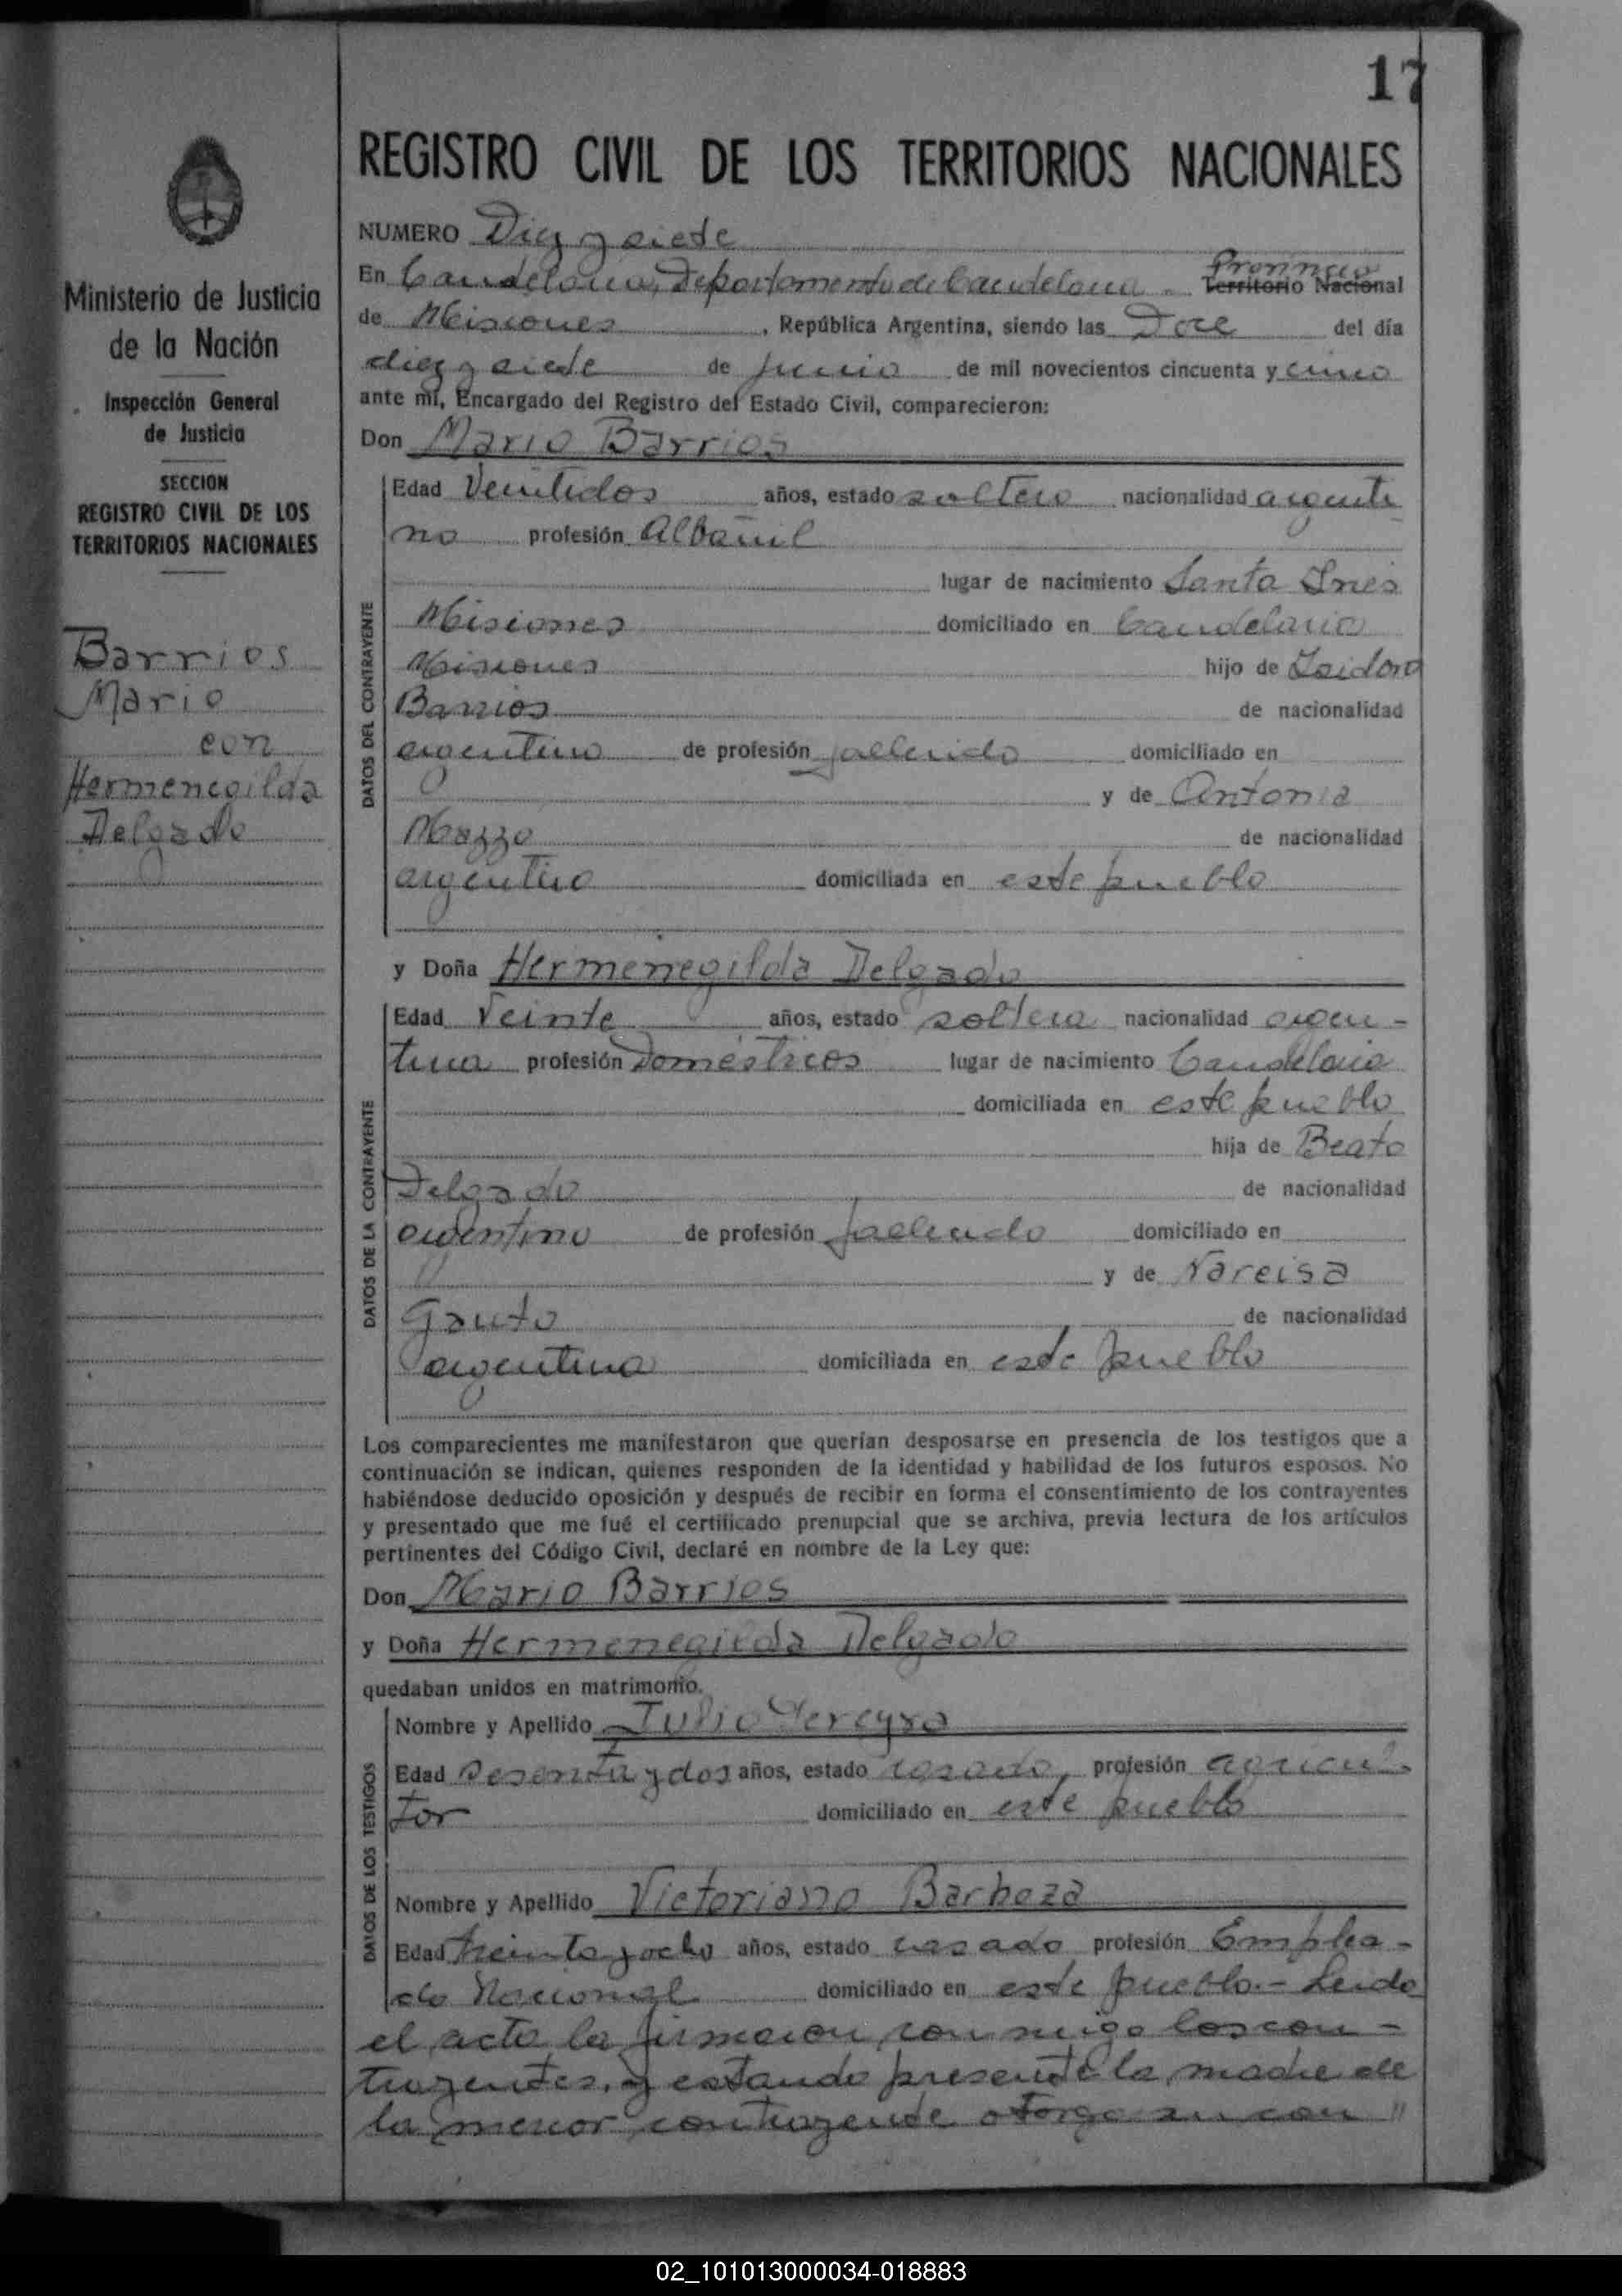 17
REGISTRO CIVIL DE LOS TERRITORIOS NACIONALES
Ministerio de Justicia
de la Nación
Inspección General
de Justicia
SECCION
REGISTRO CIVIL DE LOS
TERRITORIOS NACIONALES
Barrios
Mario
con
Hermenegilda
Delgado
NUMERO Diez y siete
Provincia
En Candelaria, Departamento de Candelaria - Territorio Nacional
de Misiones, República Argentina, siendo las Doce del día
diez y siete de junio de mil novecientos cincuenta y cinco
ante mí, Encargado del Registro del Estado Civil, comparecieron:
Don Mario Barrios
DATOS DEL CONTRAYENTE
Edad Veintidos años, estado soltero nacionalidad argenti
no profesión Albañil
lugar de nacimiento Santa Inés
Misiones domiciliado en Candelaria
Misiones hijo de Isidoro
Barrios de nacionalidad
argentino de profesión fallecido domiciliado en
y de Antonia
Mazzo de nacionalidad
argentino domiciliada en este pueblo
y Doña Hermenegilda Delgado
DATOS DE LA CONTRAYENTE
Edad Veinte años, estado soltera nacionalidad argen-
tina profesión Domésticos lugar de nacimiento Candelaria
domiciliada en este pueblo
hija de Beato
Delgado de nacionalidad
argentino de profesión fallecido domiciliado en
y de Narcisa
Gauto de nacionalidad
argentina domiciliada en este pueblo
Los comparecientes me manifestaron que querían desposarse en presencia de los testigos que a
continuación se indican, quienes responden de la identidad y habilidad de los futuros esposos. No
habiéndose deducido oposición y después de recibir en forma el consentimiento de los contrayentes
y presentado que me fué el certificado prenupcial que se archiva, previa lectura de los artículos
pertinentes del Código Civil, declaré en nombre de la Ley que:
Don Mario Barrios
y Doña Hermenegilda Delgado
quedaban unidos en matrimonio.
DATOS DE LOS TESTIGOS
Nombre y Apellido Julio Pereyra
Edad Sesenta y dos años, estado casado, profesión agricul-
tor domiciliado en este pueblo
Nombre y Apellido Victoriano Barboza
Edad treinta y ocho años, estado casado profesión Emplea-
do Nacional domiciliado en este pueblo.- Leida
el acta la firmaron con migo los con-
trayentes, y estando presente la madre de
la menor contrayente otorga su con "
02_101013000034-018883